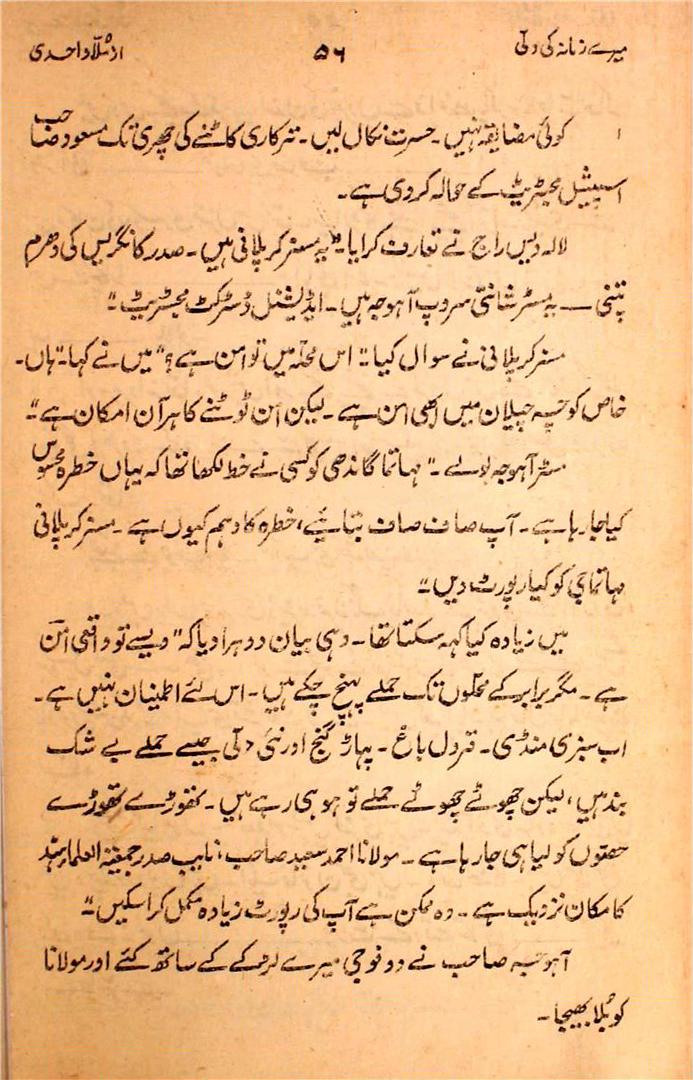 میرے زمانہ کی دلّی
۵۶
از مُلّا واحدی
کوئی مضایقہ نہیں۔ حسرت نکال لیں۔ ترکاری کاٹنے کی چھری تک مسعود صاحب
اسپیشل مجسٹریٹ کے حوالہ کر دی ہے۔
لالہ دیس راج نے تعارف کرایا۔ "یہ مسز کرپلانی ہیں۔ صدر کانگریس کی دھرم
پتنی — یہ مسٹر شانتی سروپ آہوجہ ہیں۔ ایڈیشنل ڈسٹرکٹ مجسٹریٹ"۔
مسز کرپلانی نے سوال کیا: "اس محلہ میں تو امن ہے؟" میں نے کہا: "ہاں۔
خاص کوچہ چیلان میں ابھی امن ہے۔ لیکن امن ٹوٹنے کا ہر آن امکان ہے"۔
مسٹر آہوجہ بولے۔ "مہاتما گاندھی کو کسی نے خط لکھا تھا کہ یہاں خطرہ محسوس
کیا جا رہا ہے۔ آپ صاف صاف بتائیے، خطرہ کا وہم کیوں ہے۔ مسز کرپلانی
مہاتما جی کو کیا رپورٹ دیں"۔
میں زیادہ کیا کہہ سکتا تھا۔ وہی بیان دوہرا دیا کہ "ویسے تو واقعی امن
ہے۔ مگر برابر کے محلّوں تک حملے پہنچ چکے ہیں۔ اس لئے اطمینان نہیں ہے۔
اب سبزی منڈی۔ قرول باغ۔ پہاڑ گنج اور نئی دلّی جیسے حملے بے شک
بند ہیں، لیکن چھوٹے چھوٹے حملے تو ہو ہی رہے ہیں۔ تھوڑے تھوڑے
حصّوں کو لیا ہی جا رہا ہے۔ مولانا احمد سعید صاحب، نایب صدر جمعیۃ العلماء ہند
کا مکان نزدیک ہے۔ وہ ممکن ہے آپ کی رپورٹ زیادہ مکمل کرا سکیں"۔
آہوجہ صاحب نے دو فوجی میرے لڑکے کے ساتھ کئے اور مولانا
کو بُلا بھیجا۔